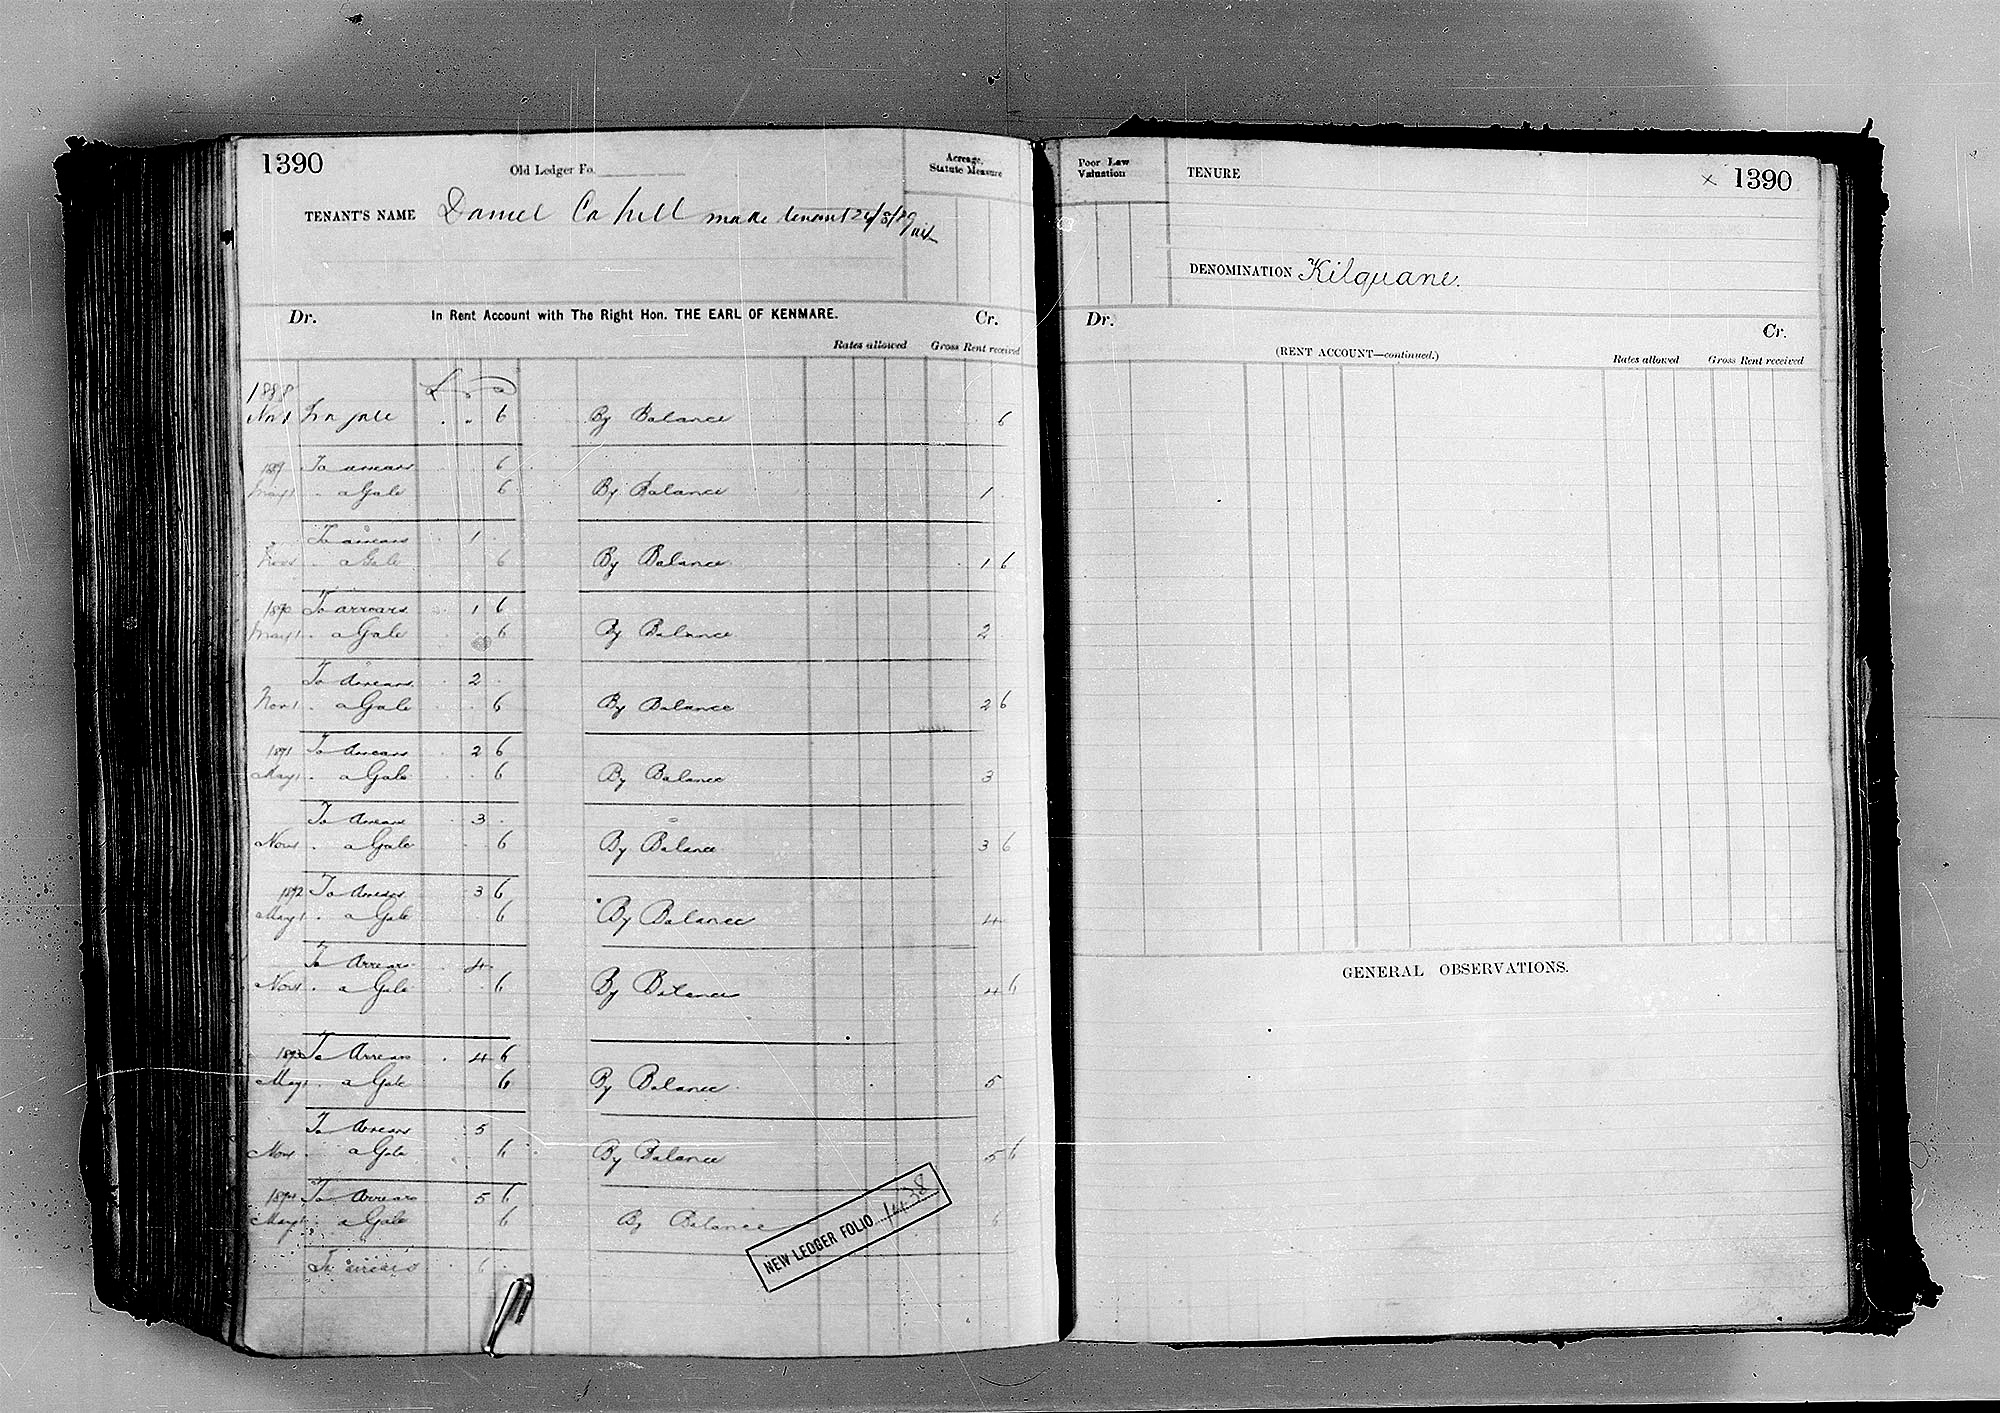 1390
Old Ledger Fo.
Acreage,
Statute Measure
TENANT'S NAME Daniel Cahill made tenant
In Rent Account with The Right Hon. THE EARL OF KENMARE.
Dr. Cr.
Rates allowed Gross Rent received
1888 £ s d
Nov 1 a gale . . 6 By Balance 6
1889 To arrears 6
May 1 " a Gale 6 By Balance 1 .
To arrears 1 .
Nov 1 " a Gale 6 By Balance 1 6
1890 To arrears 1 6
May 1 " a Gale 6 By Balance 2
To arrears 2 .
Nov 1 " a Gale 6 By Balance 2 6
1891 To Arrears 2 6
May 1 " a Gale 6 By Balance 3
To Arrears 3 .
Nov 1 " a Gale 6 By Balance 3 6
1892 To Arrears 3 6
May 1 " a Gale 6 By Balance 4
To Arrears 4
Nov 1 " a Gale 6 By Balance 4 6
1893 To Arrears 4 6
May 1 " a Gale 6 By Balance 5
To Arrears 5
Nov 1 " a Gale 6 By Balance 5 6
1894 To Arrears 5 6
May 1 " a Gale 6 By Balance 6
To arrears 6
NEW LEDGER FOLIO 1438
Poor Law
Valuation
TENURE
× 1390
DENOMINATION Kilquane.
Dr. Cr.
(RENT ACCOUNT—continued.)
Rates allowed Gross Rent received
GENERAL OBSERVATIONS.